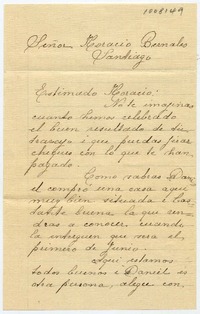 1008149
Señor Horacio Bernales
Santiago
Estimado Horacio:
No te imaginas
cuando hemos celebrado
el buen resultado de tu
trabajo i que puedas jirar
cheques con lo que te han
pagado.
Como sabras Dan.
compró una casa aquí
mui bien situada i bas
tante buena la que ven
dras a conocer, cuando
la entreguen que sera el
primero de Junio.
Aquí estamos
todos buenos i Daniel es
otra persona, alegre con.